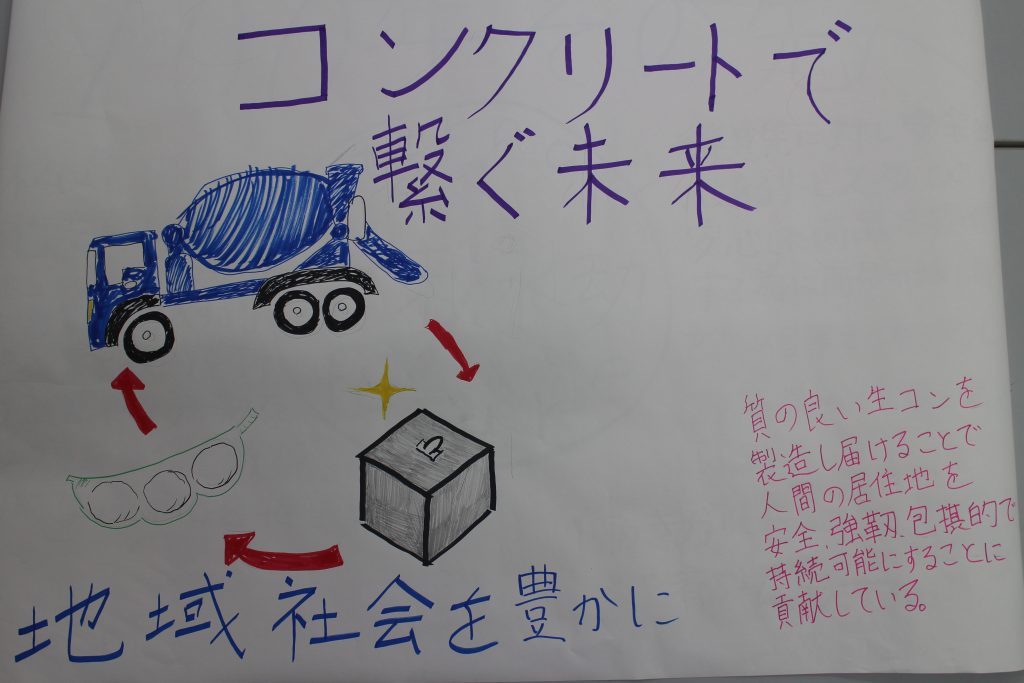 コンクリートで
繋ぐ未来
質の良い生コンを
製造し届けることで
人間の居住地を
安全、強靱、包摂的で
持続可能にすることに
貢献している。
地域社会を豊かに